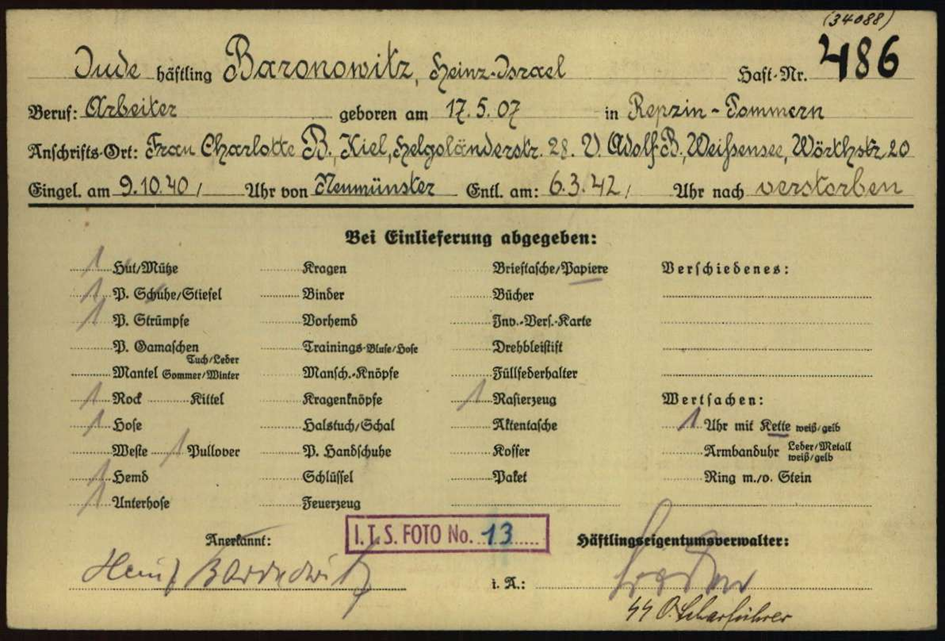 (34088)
Jude häftling Baronowitz, Heinz-Israel Haft-Nr. 486
Beruf: Arbeiter geboren am 17.5.07 in Repzin-Pommern
Anschrifts-Ort: Frau Charlotte B., Kiel, Helgoländerstr. 28. V. Adolf B., Weißensee, Wörthstr. 20
Eingel. am 9.10.40, Uhr von Neumünster Entl. am: 6.3.42, Uhr nach verstorben
Bei Einlieferung abgegeben:
1 Hut/Mütze Kragen Brieftasche/Papiere Verschiedenes:
1 P. Schuhe/Stiefel Binder Bücher
1 P. Strümpfe Vorhemd Inv.-Vers.-Karte
P. Gamaschen Tuch/Leder Trainings-Bluse/Hose Drehbleistift
Mantel Sommer/Winter Mansch.-Knöpfe Füllfederhalter
1 Rock Kittel Kragenknöpfe 1 Rasierzeug Wertsachen:
1 Hose Halstuch/Schal Aktentasche 1 Uhr mit Kette weiß/gelb
Weste 1 Pullover P. Handschuhe Koffer Armbanduhr Leder/Metall weiß/gelb
1 Hemd Schlüssel Paket Ring m./o. Stein
1 Unterhose Feuerzeug
Anerkannt: I.T.S. FOTO No. 13 Häftlingseigentumsverwalter:
Heinz Baronowitz i. A.:
SS O.Scharführer